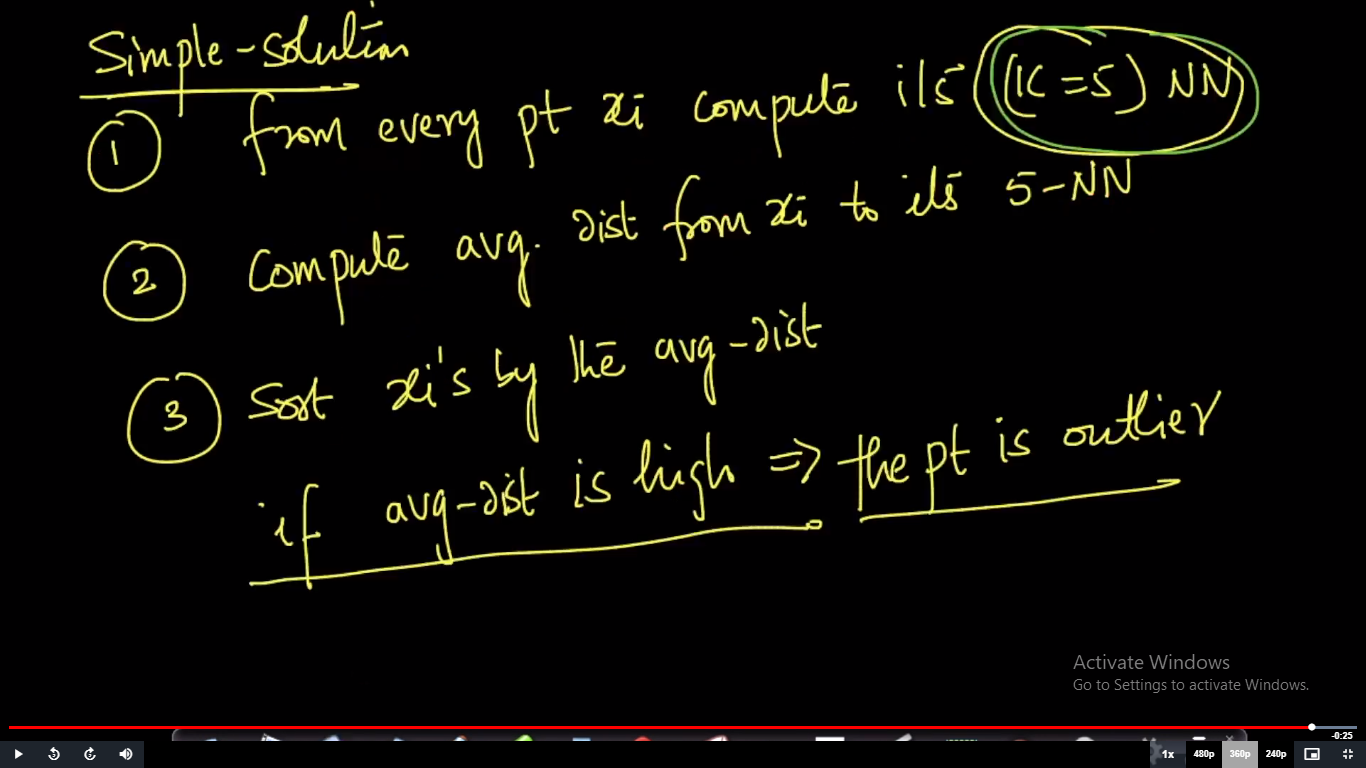 Simple-solution
① from every pt xi compute its (K=5) NN
② Compute avg. dist from xi to its 5-NN
③ Sort xi's by the avg-dist
if avg-dist is high => the pt is outlier
Activate Windows
Go to Settings to activate Windows.
-0:25
1x 480p 360p 240p